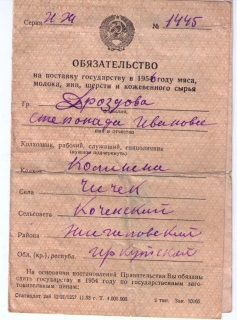 Серия НЖ № 1445
ОБЯЗАТЕЛЬСТВО
на поставку государству в 1956 году мяса,
молока, яиц, шерсти и кожевенного сырья
Гр. Дроздова
Степанида Иванови
имя и отчество
Колхозник, рабочий, служащий, единоличник
(нужное подчеркнуть)
Колхоз Калинина
Села Чичек
Сельсовета Коченский
Района Жигаловский
Обл. (кр.), республ. Иркутской
На основании постановлений Правительства Вы обязаны
сдать государству в 1954 году по государственным заго-
товительным ценам: